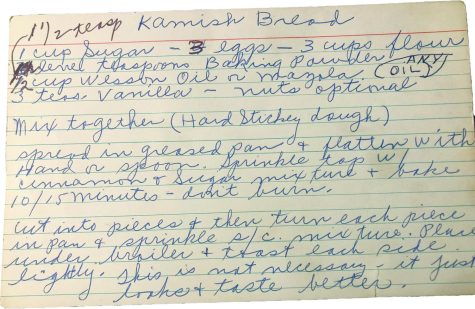 1 1/2 teasp Kamish Bread
1 cup Sugar - 3 eggs - 3 cups flour
level teaspoons Baking Powder
1/2 cup Wesson Oil or Mazola (ANY OIL)
3 teas Vanilla - nuts optional
Mix together (Hard Stickey dough)
spread in greased pan & flatten with
Hand or spoon. Sprinkle top w/
cinnamon & Sugar mixture & bake
10/15 minutes - don't burn.
Cut into pieces & then turn each piece
in pan & sprinkle s/c. mixture. Place
under broiler & toast each side
lightly. This is not necessary it just
looks & taste better.